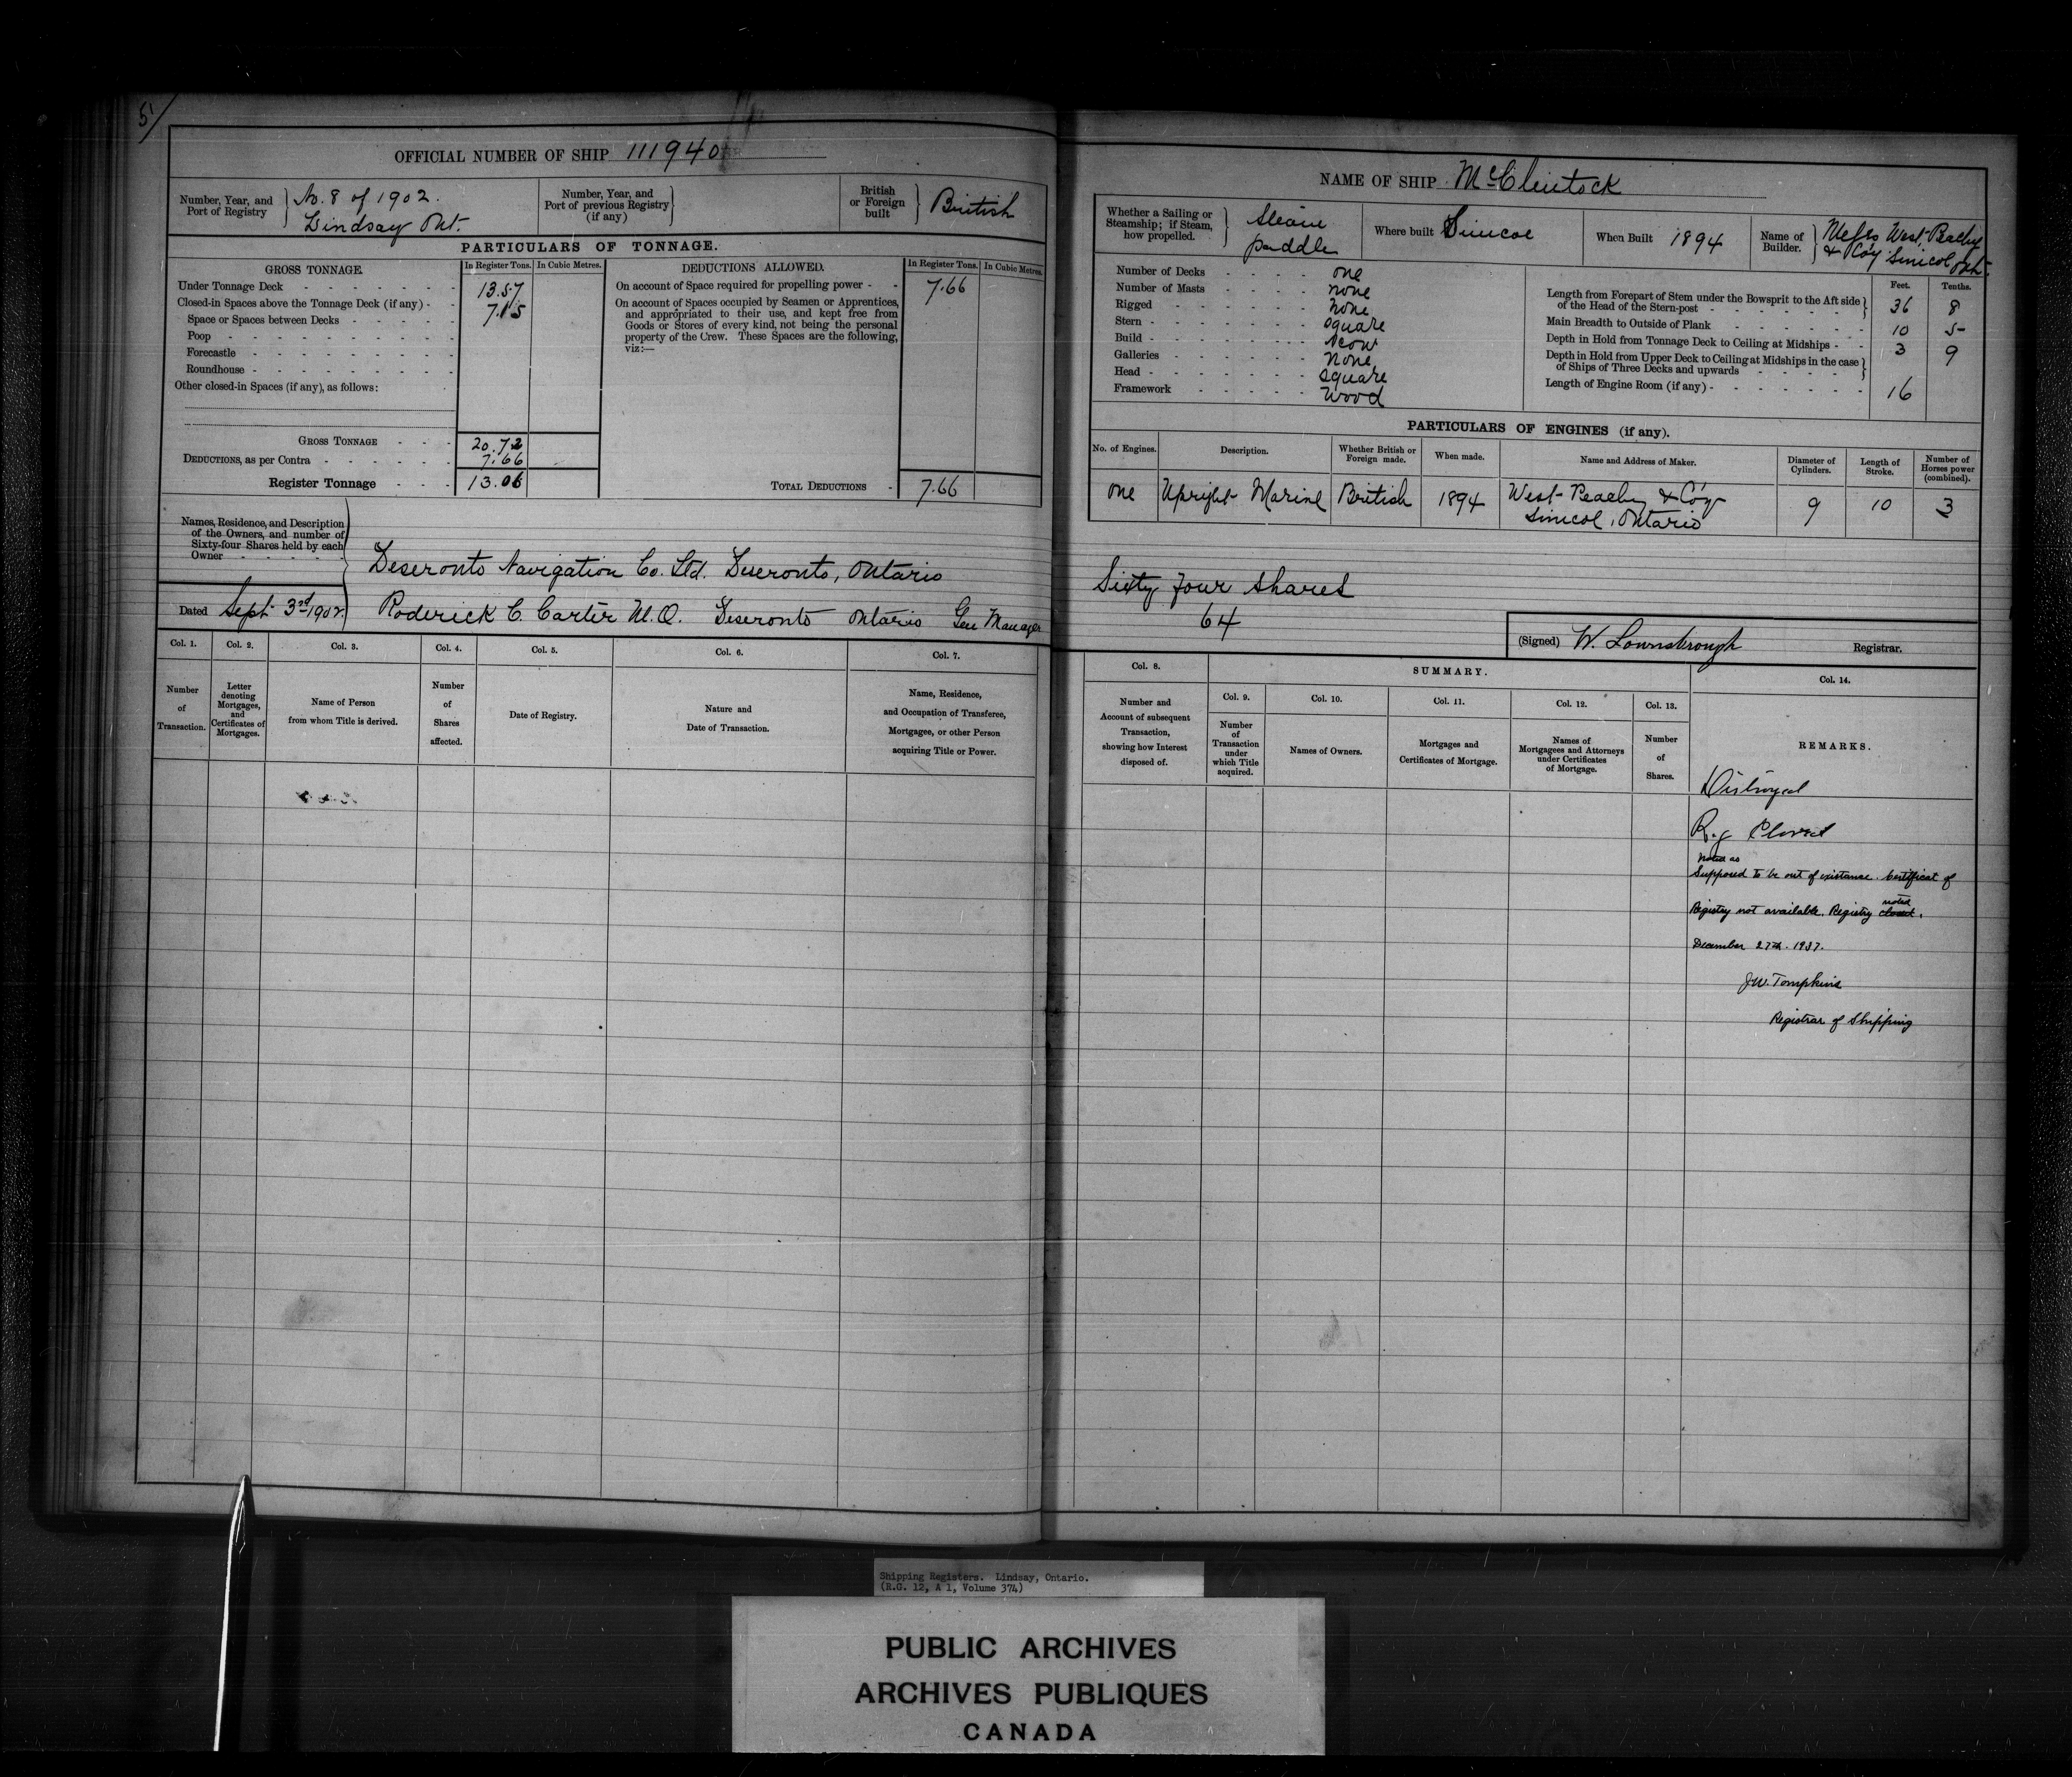 5
OFFICIAL NUMBER OF SHIP 111940
Number, Year, and Port of Registry } No. 8 of 1902. Lindsay Ont.
Number, Year, and Port of previous Registry (if any) }
British or Foreign built } British
PARTICULARS OF TONNAGE.
GROSS TONNAGE. In Register Tons. In Cubic Metres.
Under Tonnage Deck 13.57
Closed-in Spaces above the Tonnage Deck (if any) 7.15
Space or Spaces between Decks
Poop
Forecastle
Roundhouse
Other closed-in Spaces (if any), as follows:
GROSS TONNAGE 20.72
DEDUCTIONS, as per Contra 7.66
Register Tonnage 13.06
DEDUCTIONS ALLOWED. In Register Tons. In Cubic Metres.
On account of Space required for propelling power 7.66
On account of Spaces occupied by Seamen or Apprentices,
and appropriated to their use, and kept free from
Goods or Stores of every kind, not being the personal
property of the Crew. These Spaces are the following,
viz:—
TOTAL DEDUCTIONS 7.66
Names, Residence, and Description
of the Owners, and number of
Sixty-four Shares held by each
Owner
Deseronto Navigation Co. Ltd. Deseronto, Ontario
Dated Sept 3rd 1902
Roderick C. Carter M.O. Deseronto Ontario Gen Manager
Col. 1. Number of Transaction.
Col. 2. Letter denoting Mortgages, and Certificates of Mortgages.
Col. 3. Name of Person from whom Title is derived.
Col. 4. Number of Shares affected.
Col. 5. Date of Registry.
Col. 6. Nature and Date of Transaction.
Col. 7. Name, Residence, and Occupation of Transferee, Mortgagee, or other Person acquiring Title or Power.
NAME OF SHIP McClintock
Whether a Sailing or Steamship; if Steam, how propelled. } Steam paddle
Where built Simcoe
When Built 1894
Name of Builder. } Messrs West Peachy & Co'y Simcoe Ont.
Number of Decks one
Number of Masts none
Rigged none
Stern square
Build scow
Galleries none
Head square
Framework Wood
Feet. Tenths.
Length from Forepart of Stem under the Bowsprit to the Aft side
of the Head of the Stern-post 36 8
Main Breadth to Outside of Plank 10 5
Depth in Hold from Tonnage Deck to Ceiling at Midships 3 9
Depth in Hold from Upper Deck to Ceiling at Midships in the case
of Ships of Three Decks and upwards
Length of Engine Room (if any) 16
PARTICULARS OF ENGINES (if any).
No. of Engines. Description. Whether British or Foreign made. When made. Name and Address of Maker. Diameter of Cylinders. Length of Stroke. Number of Horses power (combined).
one Upright Marine British 1894 West Peachy & Co'y Simcoe, Ontario 9 10 3
Sixty four shares
64
(Signed) W. Lownsbrough Registrar.
Col. 8. Number and Account of subsequent Transaction, showing how Interest disposed of.
SUMMARY.
Col. 9. Number of Transaction under which Title acquired.
Col. 10. Names of Owners.
Col. 11. Mortgages and Certificates of Mortgage.
Col. 12. Names of Mortgagees and Attorneys under Certificates of Mortgage.
Col. 13. Number of Shares.
Col. 14. REMARKS.
Distroyed
Reg Closed
Noted as
Supposed to be out of existance. Certificat of
Registry not available. Registry closed noted.
December 27th. 1937.
J.W. Tompkins
Registrar of Shipping
Shipping Registers. Lindsay, Ontario.
(R.G. 12, A 1, Volume 374)
PUBLIC ARCHIVES
ARCHIVES PUBLIQUES
CANADA